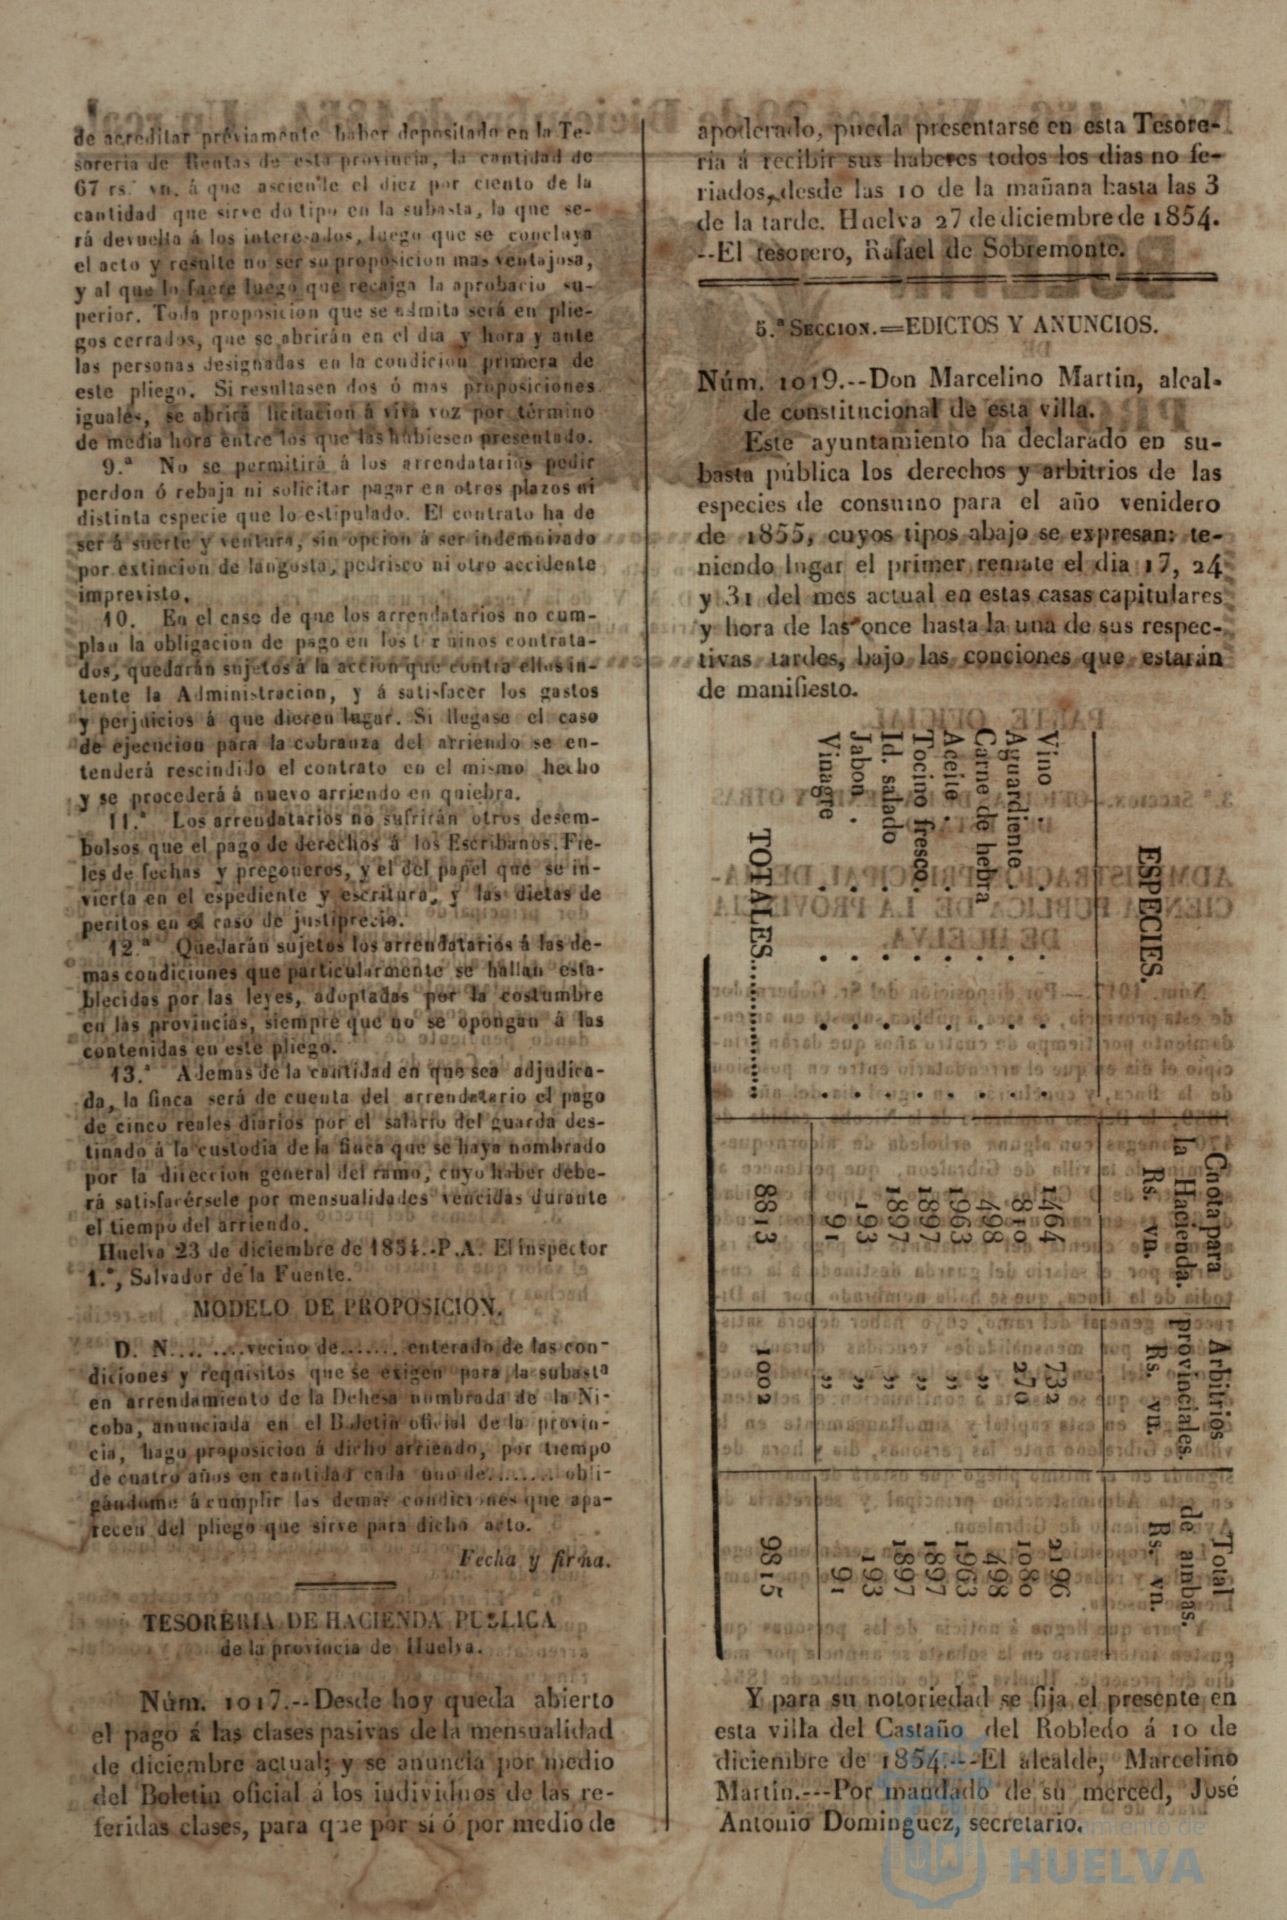 de acreditar préviamente haber depositado en la Te-
soreria de Rentas de esta provincia, la cantidad de
67 rs. vn. á que asciende el diez por ciento de la
cantidad que sirve do tipo en la subasta, la que se-
rá devuelta á los interesados, luego que se concluya
el acto y resulte no ser su proposicion mas ventajosa,
y al que lo fuere luego que recaiga la aprobacio su-
perior. Toda proposicion que se admita será en plie-
gos cerrados, que se abrirán en el dia y hora y ante
las personas designadas en la condicion primera de
este pliego. Si resultasen dos ó mas proposiciones
iguales, se abrirá licitacion á viva voz por término
de media hora entre los que las hubiesen presentado.
9.ª No se permitirá á los arrendatarios pedir
perdon ó rebaja ni solicitar pagar en otros plazos ni
distinta especie que lo estipulado. El contrato ha de
ser á suerte y ventura, sin opcion á ser indemnizado
por extincion de langosta, pedrisco ni otro accidente
imprevisto.
10. En el caso de que los arrendatarios no cum-
plan la obligacion de pago en los terminos contrata-
dos, quedarán sujetos á la accion que contra ellos in-
tente la Administracion, y á satisfacer los gastos
y perjuicios á que dieren lugar. Si llegase el caso
de ejecucion para la cobranza del arriendo se en-
tenderá rescindido el contrato en el mismo hecho
y se procederá á nuevo arriendo en quiebra.
11.ª Los arrendatarios no sufrirán otros desem-
bolsos que el pago de derechos á los Escribanos. Fie-
les de fechas y pregoneros, y el del papel que se in-
vierta en el espediente y escritura, y las dietas de
peritos en el caso de justiprecio.
12.ª Quedarán sujetos los arrendatarios á las de-
mas condiciones que particularmente se hallan esta-
blecidas por las leyes, adoptadas por la costumbre
en las provincias, siempre que no se opongan á las
contenidas en este pliego.
13.ª Ademas de la cantidad en que sea adjudica-
da, la finca será de cuenta del arrendatario el pago
de cinco reales diarios por el salario del guarda des-
tinado á la custodia de la finca que se haya nombrado
por la direccion general del ramo, cuyo haber debe-
rá satisfacérsele por mensualidades vencidas durante
el tiempo del arriendo.
Huelva 23 de diciembre de 1854.-P.A. El inspector
1.°, Salvador de la Fuente.
MODELO DE PROPOSICION.
D. N.... ....vecino de....... enterado de las con-
diciones y requisitos que se exigen para la subasta
en arrendamiento de la Dehesa nombrada de la Ni-
coba, anunciada en el Boletin oficial de la provin-
cia, hago proposicion á dicho arriendo, por tiempo
de cuatro años en cantidad cada uno de........ obli-
gándome á cumplir las demas condiciones que apa-
recen del pliego que sirve para dicho acto.
Fecha y firma.
TESORERIA DE HACIENDA PUBLICA
de la provincia de Huelva.
Núm. 1017.--Desde hoy queda abierto
el pago á las clases pasivas de la mensualidad
de diciembre actual; y se anuncia por medio
del Boletin oficial á los individuos de las re-
feridas clases, para que por sí ó por medio de
apoderado, pueda presentarse en esta Tesore-
ria á recibir sus haberes todos los dias no fe-
riados, desde las 10 de la mañana hasta las 3
de la tarde. Huelva 27 de diciembre de 1854.
--El tesorero, Rafael de Sobremonte.
5.ª SECCION.=EDICTOS Y ANUNCIOS.
Núm. 1019.--Don Marcelino Martin, alcal-
de constitucional de esta villa.
Este ayuntamiento ha declarado en su-
basta pública los derechos y arbitrios de las
especies de consumo para el año venidero
de 1855, cuyos tipos abajo se expresan: te-
niendo lugar el primer remate el dia 17, 24
y 31 del mes actual en estas casas capitulares
y hora de las once hasta la una de sus respec-
tivas tardes, bajo las conciones que estarán
de manifiesto.
ESPECIES. Cuota para la Hacienda. Rs. vn. Arbitrios provinciales. Rs. vn. Total de ambas. Rs. vn.
Vino . . . . . 1464 732 2196
Aguardiente. . . . . 810 270 1080
Carne de hebra . . . . 498 ,, 498
Aceite . . . . . 1963 ,, 1963
Tocino fresco. . . . . 1897 ,, 1897
Id. salado . . . . 1897 ,, 1897
Jabon . . . . . 193 ,, 193
Vinagre . . . . 91 ,, 91
TOTALES.................. 8813 1002 9815
Y para su notoriedad se fija el presente en
esta villa del Castaño del Robledo á 10 de
diciembre de 1854.--El alcalde, Marcelino
Martin.---Por mandado de su merced, José
Antonio Dominguez, secretario.
Ayuntamiento de
HUELVA